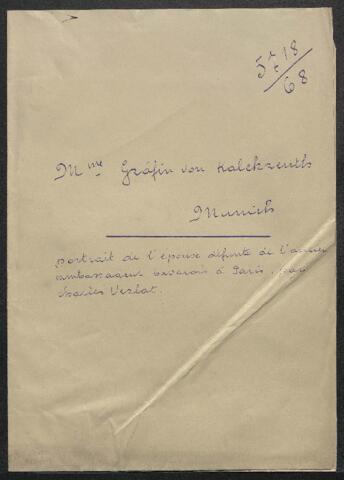 5718/68
Mme Gräfin von Kalckreuth
Munich
portrait de l'épouse défunte de l'ancien
ambassadeur bavarois à Paris, par
Charles Verlat.